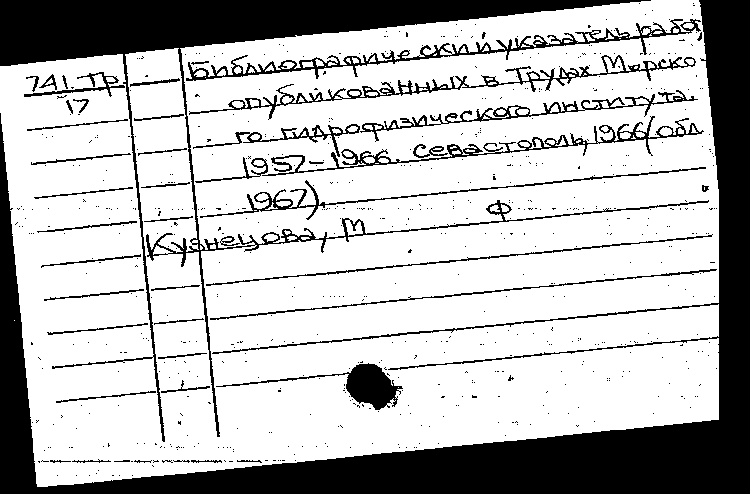 741 Тр.
17
Библиографический указатель работ,
опубликованных в Трудах Морско-
го гидрофизического института.
1957-1966. Севастополь, 1966 (обл
1967).
Ф
Кузнецова, М